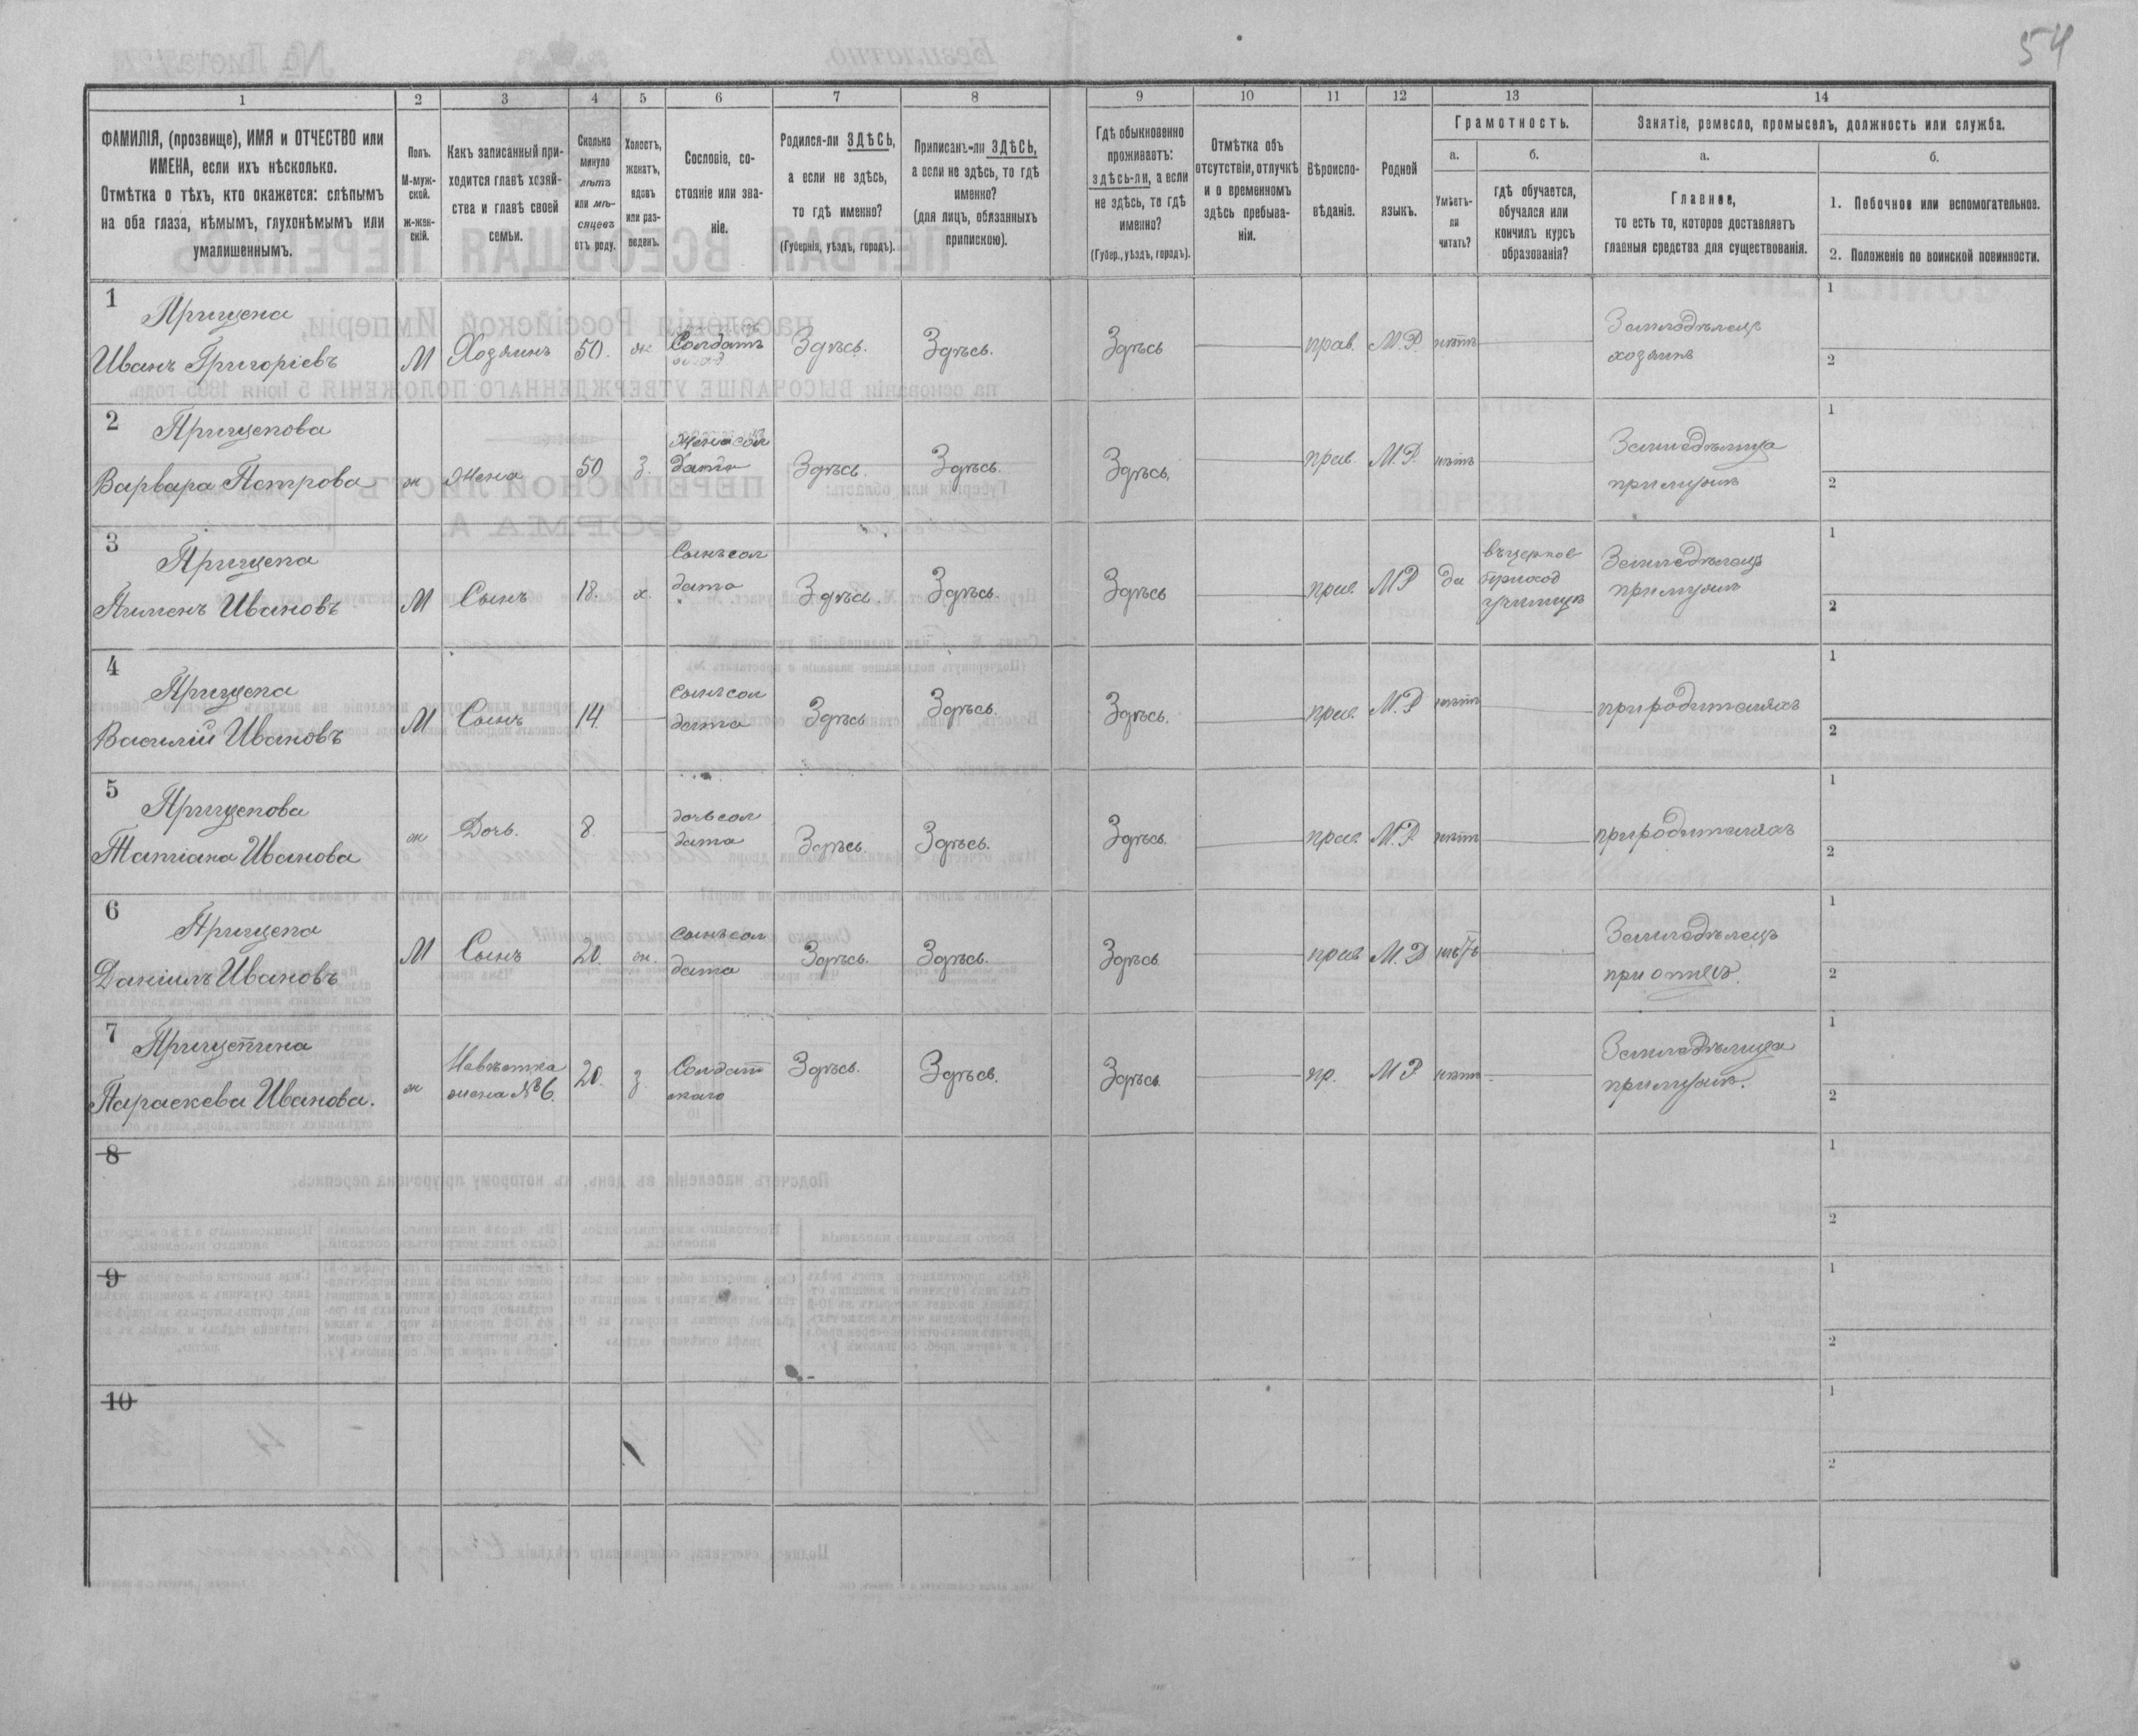 54
1 2 3 4 5 6 7 8 9 10 11 12 13 14
ФАМИЛІЯ, (прозвище), ИМЯ и ОТЧЕСТВО или
ИМЕНА, если ихъ нѣсколько.
Отмѣтка о тѣхъ, кто окажется: слѣпымъ
на оба глаза, нѣмымъ, глухонѣмымъ или
умалишеннымъ.
Полъ.
М-муж-
ской.
ж-жен-
скій.
Какъ записанный при-
ходится главѣ хозяй-
ства и главѣ своей
семьи.
Сколько
минуло
лѣтъ
или мѣ-
сяцевъ
отъ роду.
Холостъ,
женатъ,
вдовъ
или раз-
веденъ.
Сословіе, со-
стояніе или зва-
ніе.
Родился-ли ЗДѢСЬ,
а если не здѣсь,
то гдѣ именно?
(Губернія, уѣздъ, городъ).
Приписанъ-ли ЗДѢСЬ,
а если не здѣсь, то гдѣ
именно?
(для лицъ, обязанныхъ
припискою).
Гдѣ обыкновенно
проживаетъ:
здѣсь-ли, а если
не здѣсь, то гдѣ
именно?
(Губер., уѣздъ, городъ).
Отмѣтка объ
отсутствіи, отлучкѣ
и о временномъ
здѣсь пребыва-
ніи.
Вѣроиспо-
вѣданіе.
Родной
языкъ.
Грамотность.
а.
Умѣетъ-
ли
читать?
б.
гдѣ обучается,
обучался или
кончилъ курсъ
образованія?
Занятіе, ремесло, промыселъ, должность или служба.
а.
Главное,
то есть то, которое доставляетъ
главныя средства для существованія.
б.
1. Побочное или вспомогательное.
2. Положеніе по воинской повинности.
1 Прищепа
Иванъ Григоріевъ
М
Хозяинъ
50.
ж
Солдатъ
Здѣсь.
Здѣсь.
Здѣсь
прав.
М.Р.
нѣтъ
Земледѣлецъ
хозяинъ
1
2
2 Прищепова
Варвара Петрова
ж
Жена
50
з.
Жена сол
дата
Здѣсь.
Здѣсь.
Здѣсь,
прав.
М.Р.
нѣтъ
Земледѣлица
при мужѣ
1
2
3 Прищепа
Пименъ Ивановъ.
М
Сынъ
18.
х.
Сынъ сол
дата
Здѣсь.
Здѣсь.
Здѣсь
прав.
М Р
да
въ церков
приход
училищѣ
Земледѣлецъ
1
2
4 Прищепа
Василій Ивановъ
М
Сынъ
14.
Сынъ сол
дата
Здѣсь
Здѣсь.
Здѣсь.
прав.
М.Р
нѣтъ
при родителяхъ
1
2
5 Прищепова
Татіана Иванова
ж
Дочь.
8.
дочь сол
дата
Здѣсь.
Здѣсь.
Здѣсь.
прав.
М.Р.
нѣтъ
при родителяхъ
1
2
6 Прищепа
Даніилъ Ивановъ
М
Сынъ
20.
ж.
сынъ сол
дата
Здѣсь.
Здѣсь.
Здѣсь
прав
М.Р
нѣтъ
Земледѣлецъ
при отцѣ.
1
2
7 Прищепина
Параскева Иванова.
ж
Невѣстка
жена №6.
20.
з.
Солдат
скаго
Здѣсь.
Здѣсь.
Здѣсь
пр.
М Р
нѣтъ
Земледѣлица
при мужѣ.
1
2
8
1
2
9
1
2
10
1
2